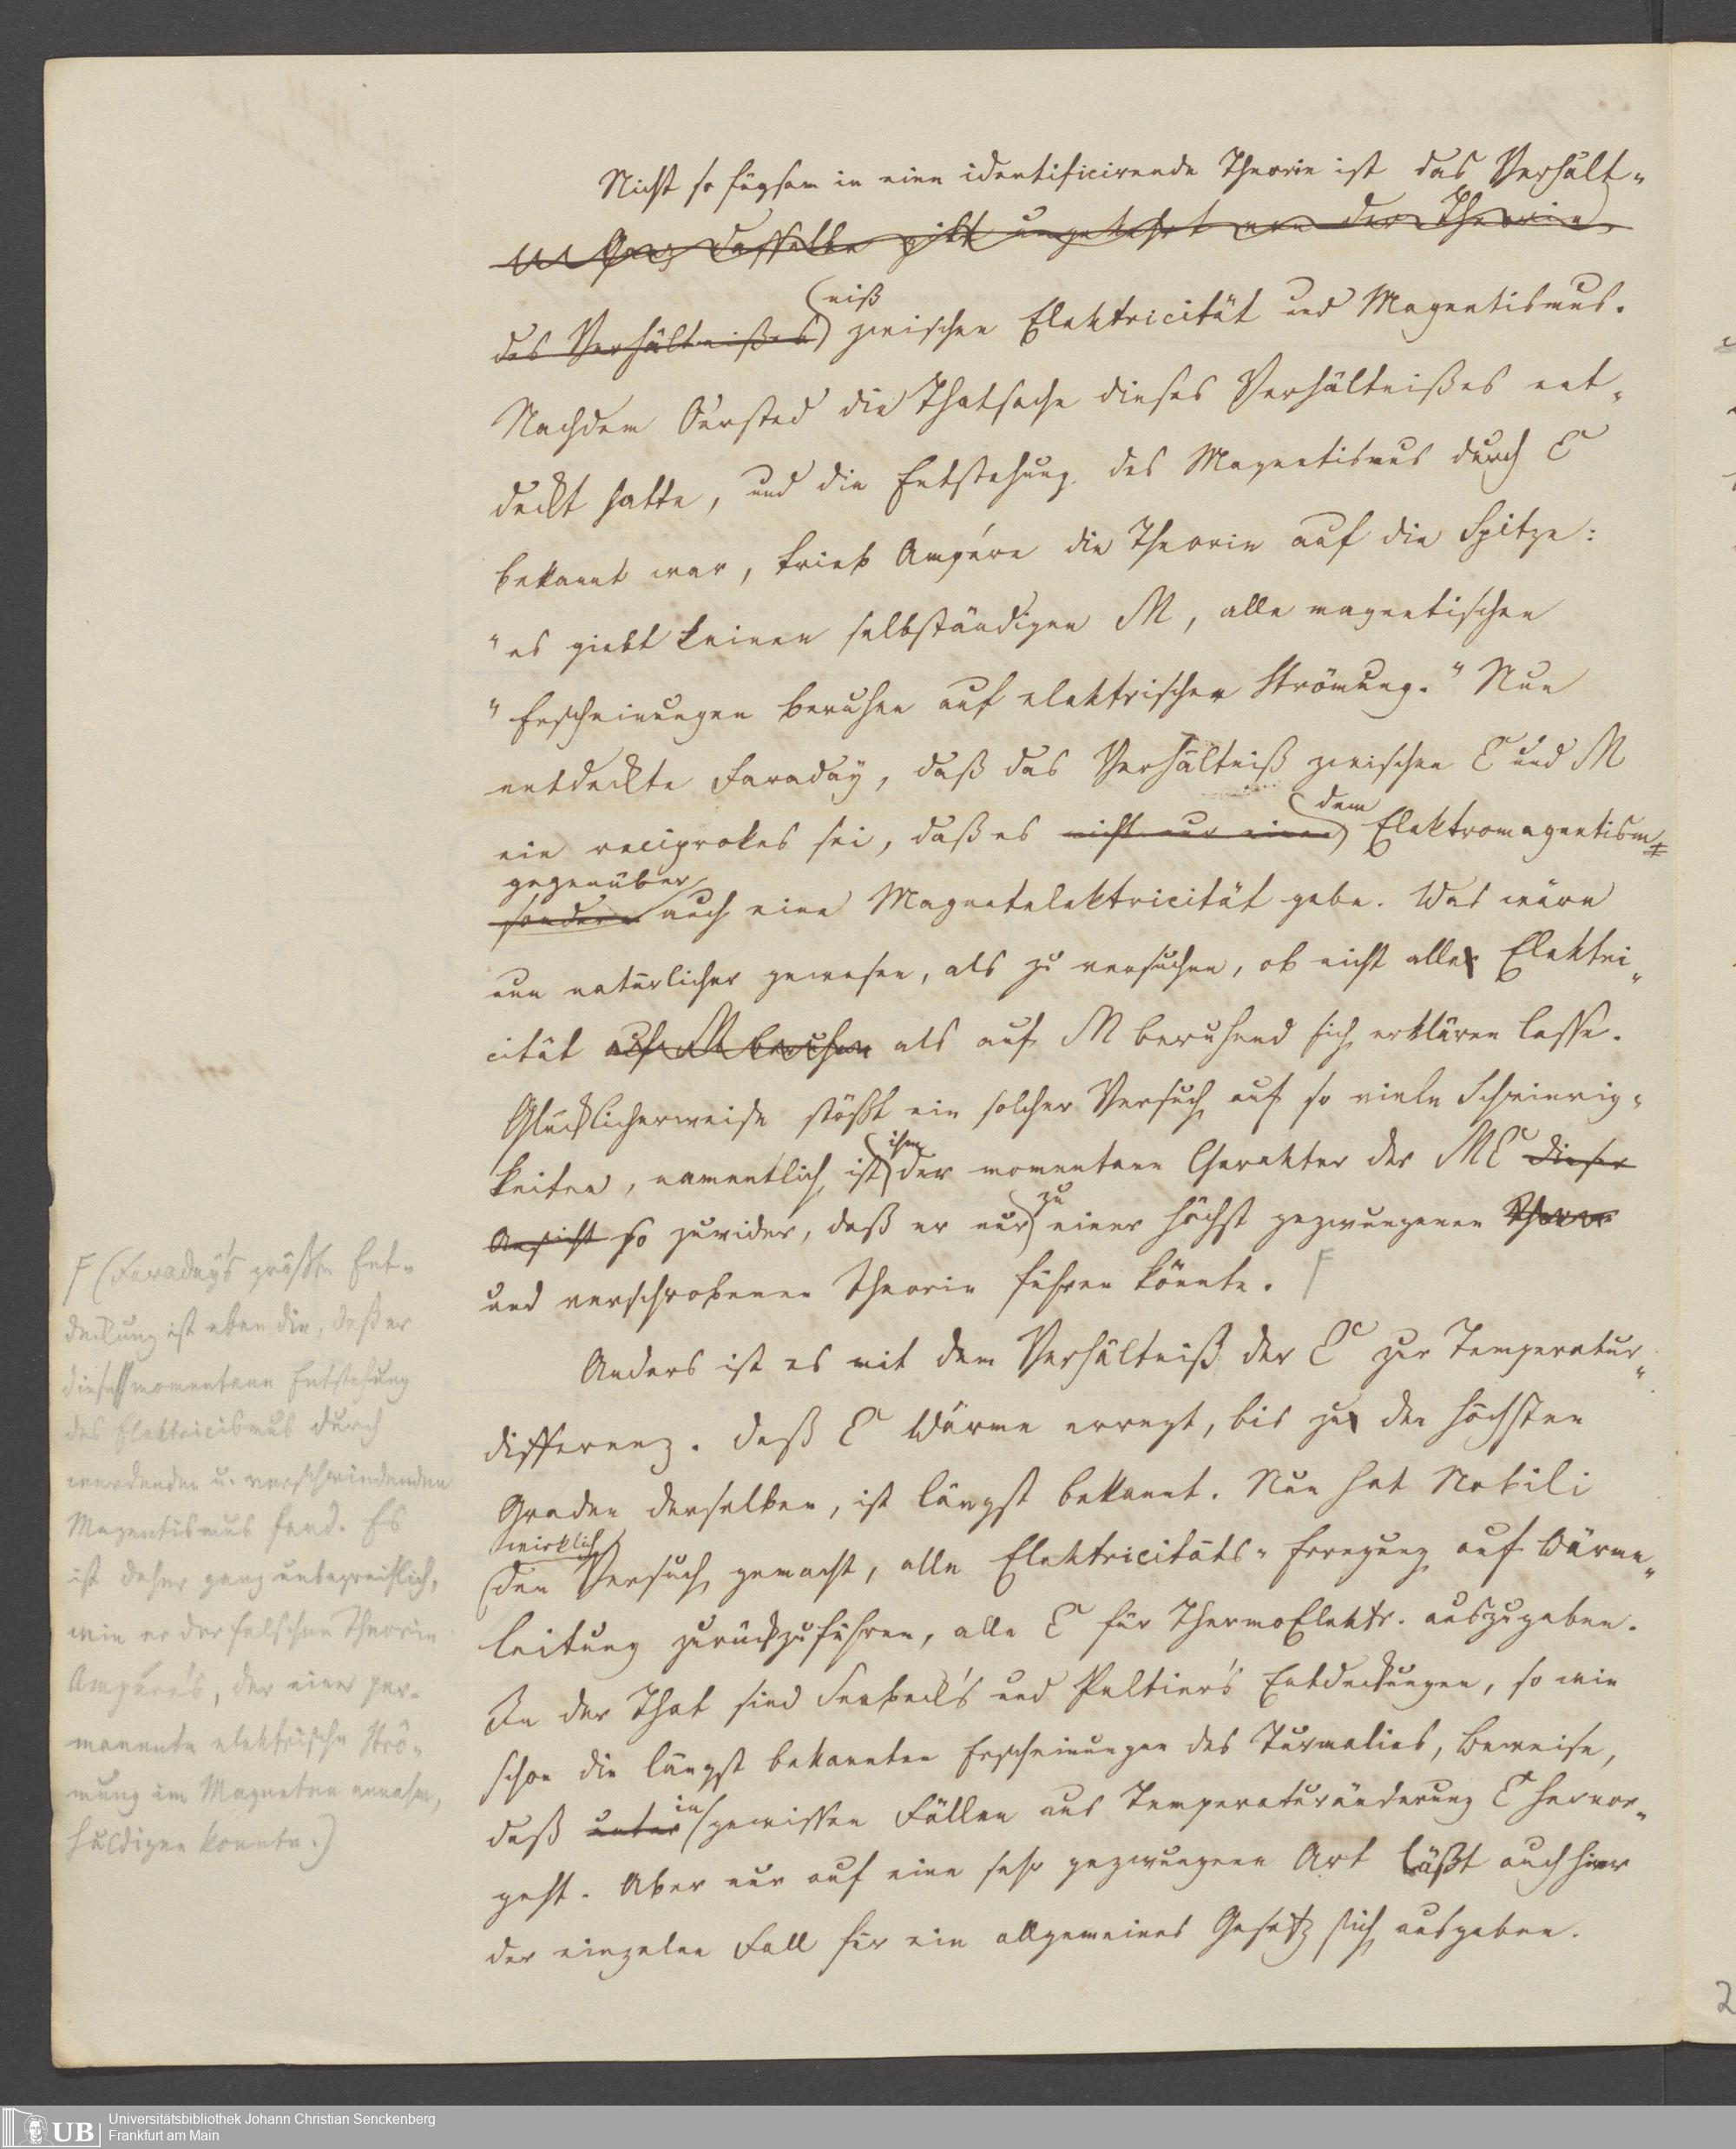 Nicht so fügsam in eine identificirende Theorie ist das Verhält-
Ganz dasselbe gilt umgekehrt von der Theorie
des Verhältnißes niß zwischen Elektricität und Magnetismus.
Nachdem Oersted die Thatsache dieses Verhältnißes ent-
deckt hatte, und die Entstehung des Magnetismus durch E
bekannt war, trieb Ampére die Theorie auf die Spitze:
"es giebt keinen selbständigen M, alle magnetischen
"Erscheinungen beruhen auf elektrischer Strömung." Nun
entdeckte Faraday, daß das Verhältniß zwischen E und M
ein reciprokes sei, daß es nicht nur einen dem Elektromagnetism
gegenüber
sondern auch eine Magnetelektricität gebe. Was wäre
nun natürlicher gewesen, als zu versuchen, ob nicht alle Elektri-
cität auf M beruhen als auf M beruhend sich erklären lasse.
Glücklicherweise stößt ein solcher Versuch auf so viele Schwierig-
keiten, namentlich ist ihm der momentane Charakter der ME dieser
Ansicht so zuwider, daß er nur zu einer höchst gezwungenen Theorie
und verschrobenen Theorie führen könnte. F
Anders ist es mit dem Verhältniß der E zur Temperatur-
differenz. Daß E Wärme erregt, bis zu den höchsten
Graden derselben, ist längst bekannt. Nun hat Nobili
wirklich
den Versuch gemacht, alle Elektricitäts-Erregung auf Wärme-
leitung zurückzuführen, alle E für ThermoElektr. auszugeben.
In der That sind Seebeck's und Peltier's Entdeckungen, so wie
schon die längst bekannten Erscheinungen des Turmalins, Beweise,
daß unter in gewissen Fällen aus Temperaturänderung E hervor-
geht. Aber nur auf eine sehr gezwungene Art läßt auch hier
der einzelne Fall für ein allgemeines Gesetz sich ausgeben.
F (Faraday's größte Ent-
deckung ist eben die, daß er
diese momentane Entstehung
des Elektricismus durch
werdenden u. verschwindenden
Magnetismus fand. Es
ist daher ganz unbegreiflich,
wie er der falschen Theorie
Ampére's, der eine per-
manente elektrische Strö-
mung im Magneten annahm,
huldigen konnte.)
2
UB
Universitätsbibliothek Johann Christian Senckenberg
Frankfurt am Main